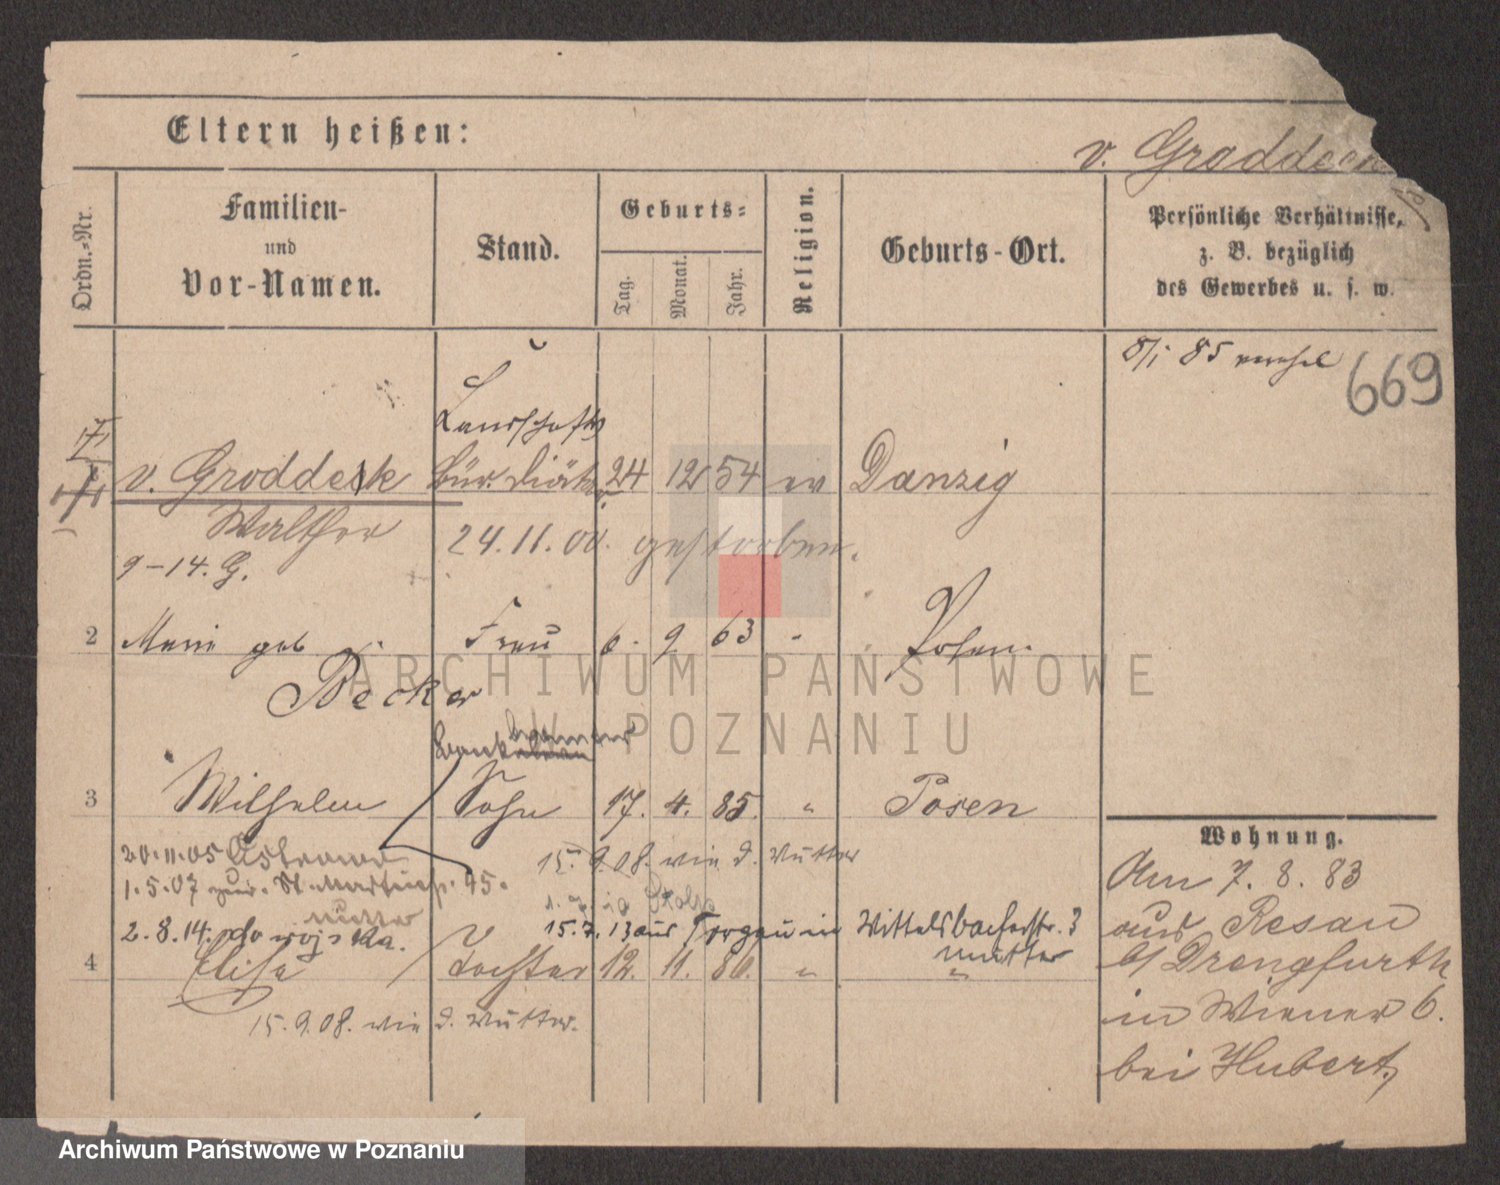 Eltern heißen:
v. Groddeck
Ordn.-Nr.
Familien-
und
Vor-Namen.
Stand.
Geburts-
Tag.
Monat.
Jahr.
Religion.
Geburts-Ort.
Persönliche Verhältnisse,
z. B. bezüglich
des Gewerbes u. s. w.
85
669
Landschafts
v. Groddeck Bür. Diätar 24 12 54 ev Danzig
Walther 24.11.00. gestorben.
9-14. G.
2 Marie geb Frau 6. 9 63 " Posen.
Becker
3 Wilhelm Sohn 17. 4. 85. " Posen
Wohnung.
20.11.05
15.9.08. wie d. Mutter
1.5.07 zur. St. Martinstr. 45.
Mutter
2.8.14. do wojska.
15.7.13 aus Torgau in Wittelsbacherstr. 3
Mutter
4 Elise Tochter 12. 11. 86. " "
15.9.08. wie d. Mutter.
Am 7. 8. 83
aus Resau
b/ Drengfurth
in Wiener 6.
bei Hubert,
ARCHIWUM PAŃSTWOWE
W POZNANIU
Archiwum Państwowe w Poznaniu